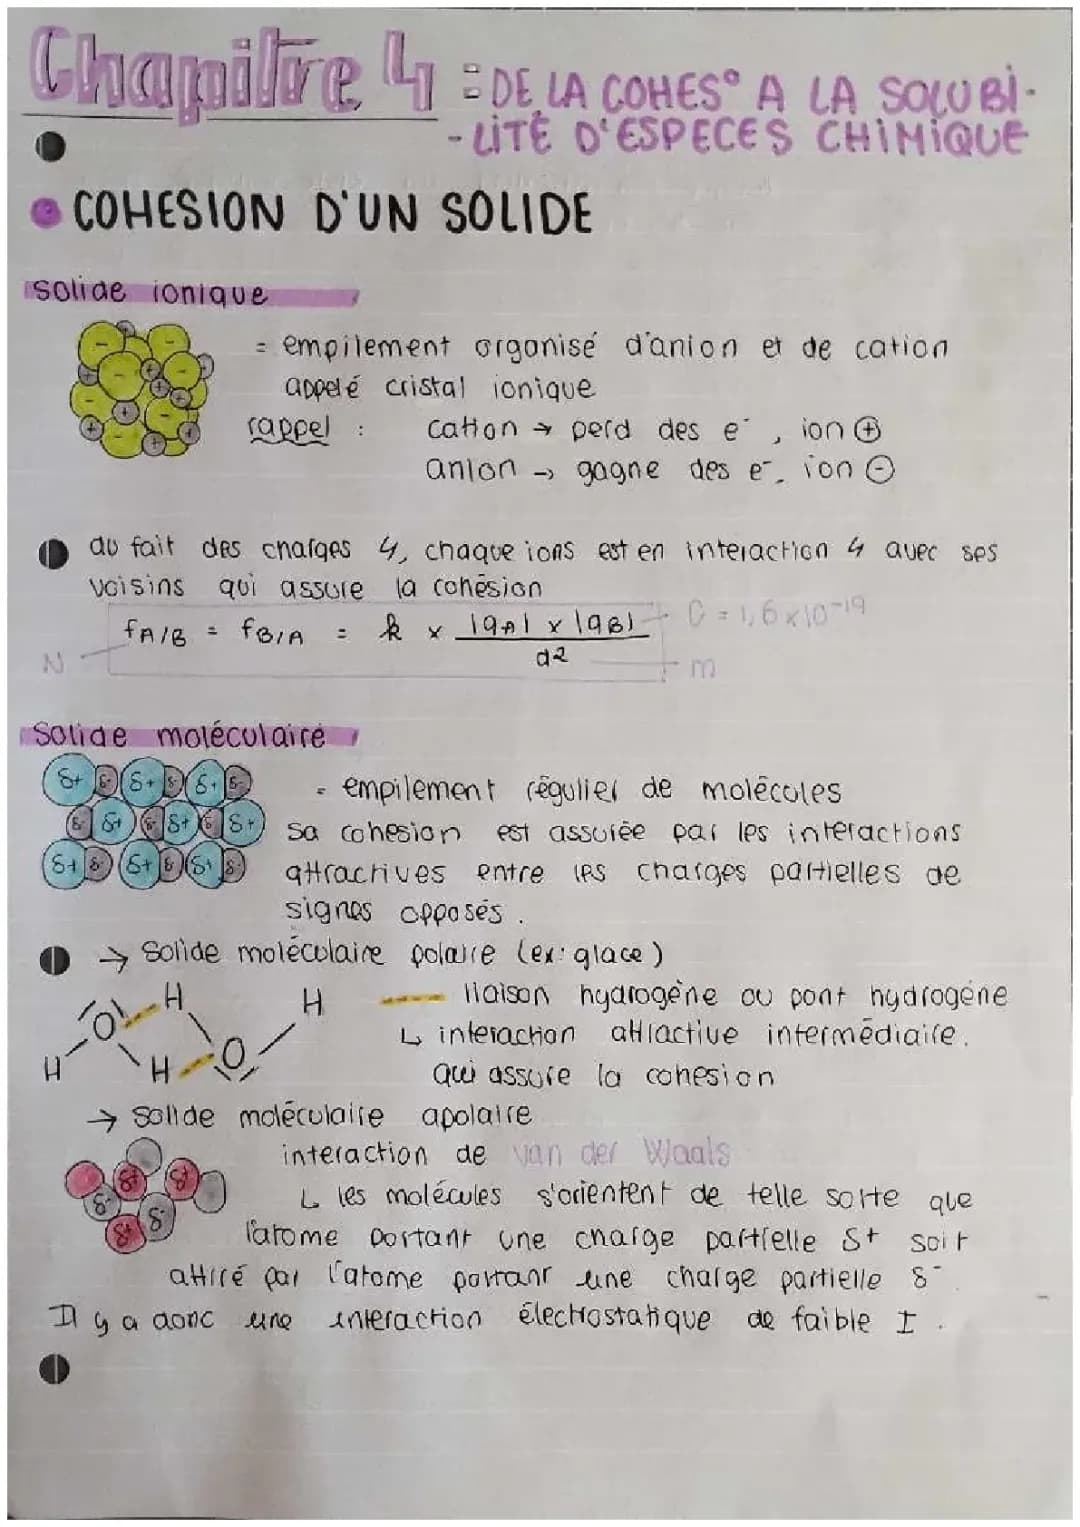 Chapitre 4 : DE LA COHES° A LA SOLUBI-
-LITÉ D'ESPECES CHIMIQUE
COHESION D'UN SOLIDE
solide ionique
= empilement organisé d'anion et de cation
appelé cristal ionique
rappel : cation → perd des e⁻, ion ⊕
anion → gagne des e⁻, ion ⊖
du fait des charges 4, chaque ions est en interaction 4 avec ses
voisins qui assure la cohésion
fA/B = fB/A = k × |qA| × |qB| / d2 C = 1,6 × 10⁻¹⁹
N m
Solide moléculaire
δ+ δ- δ+ δ- δ+ δ-
= empilement régulier de molécules
δ- δ+ δ- δ+ δ- δ+
sa cohesion est assurée par les interactions
δ+ δ- δ+ δ- δ+ δ-
attractives entre les charges partielles de
signes opposés.
→ Solide moléculaire polaire (ex: glace)
H H liaison hydrogène ou pont hydrogène
O
↳ interaction attractive intermédiaire.
H H O
qui assure la cohesion
→ Solide moléculaire apolaire
interaction de van der Waals
δ+ δ+
↳ les molécules s'orientent de telle sorte que
δ- δ-
δ+
l'atome portant une charge partielle δ+ soit
attiré par l'atome portant une charge partielle δ⁻.
Il y a donc une interaction électrostatique de faible I.